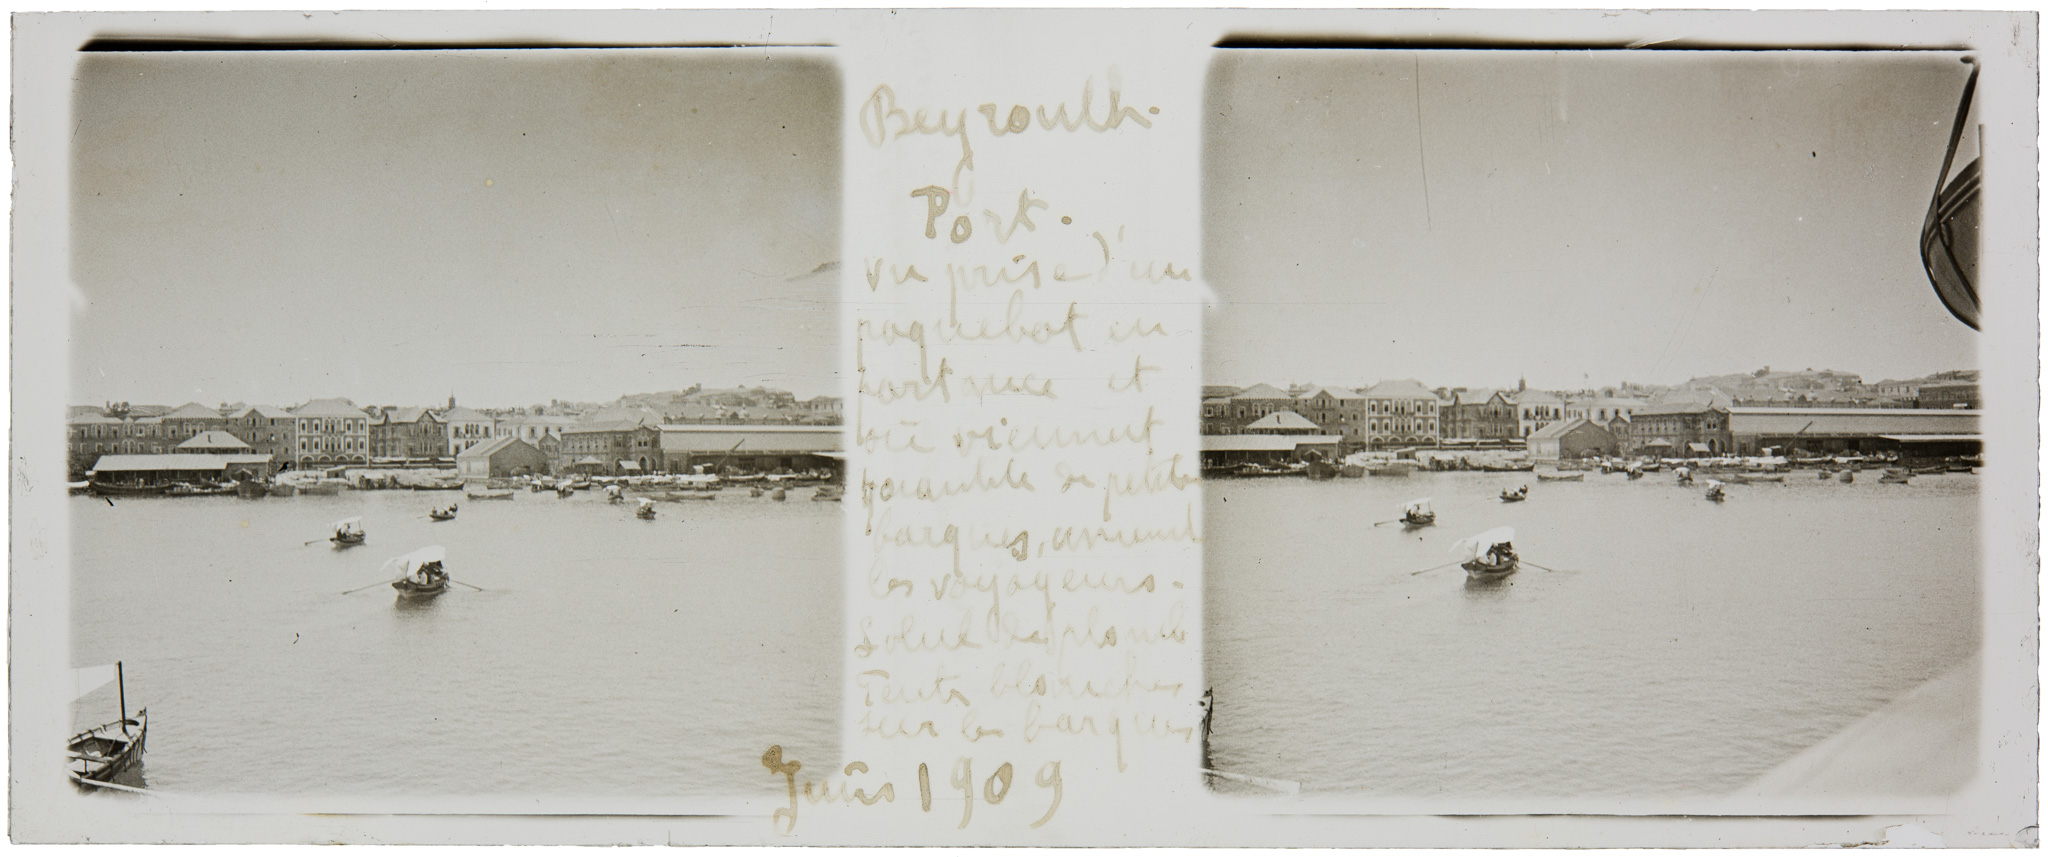 Beyrouth.
Port.
vu prise d'un
paquebot en
partance et
où viennent
de petites
barques, amenant
les voyageurs.
Soleil de plomb
Tentes blanches
sur les barques
1909